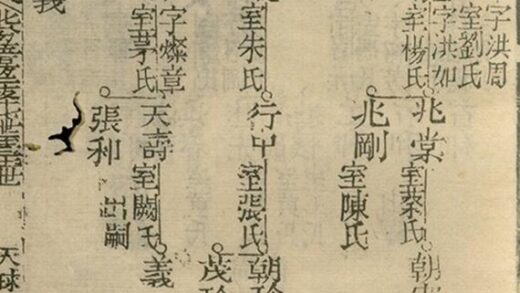 字洪周
室劉氏
字洪如
室楊氏
兆棠
室蔡氏
兆剛
室陳氏
室朱氏
行中
室張氏
茂
字燦章
室茅氏
天壽
室闕氏
義
張利
出嗣
義
天球